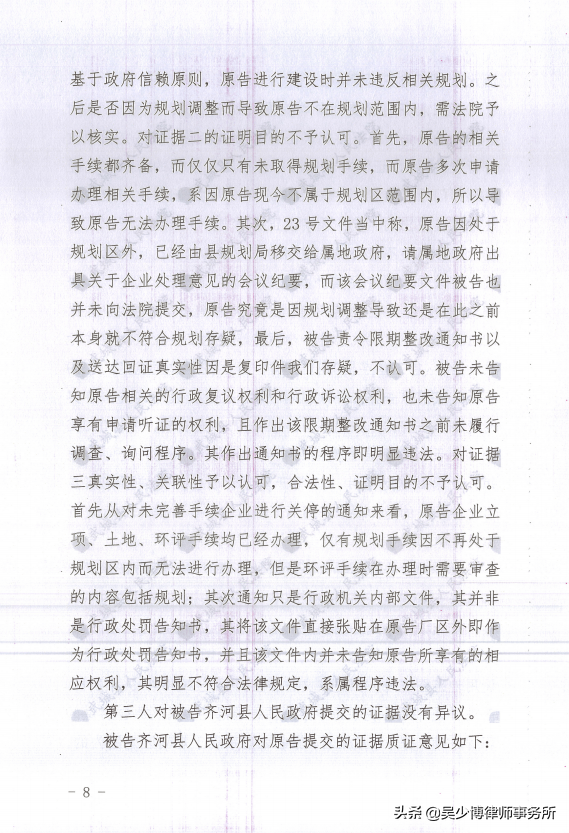 基于政府信赖原则，原告进行建设时并未违反相关规划。之
后是否因为规划调整而导致原告不在规划范围内，需法院予
以核实。对证据二的证明目的不予认可。首先，原告的相关
手续都齐备，而仅仅只有未取得规划手续，而原告多次申请
办理相关手续，系因原告现今不属于规划区范围内，所以导
致原告无法办理手续。其次，23 号文件当中称，原告因处于
规划区外，已经由县规划局移交给属地政府，请属地政府出
具关于企业处理意见的会议纪要，而该会议纪要文件被告也
并未向法院提交，原告究竟是因规划调整导致还是在此之前
本身就不符合规划存疑，最后，被告责令限期整改通知书以
及送达回证真实性因是复印件我们存疑，不认可。被告未告
知原告相关的行政复议权利和行政诉讼权利，也未告知原告
享有申请听证的权利，且作出该限期整改通知书之前未履行
调查、询问程序。其作出通知书的程序即明显违法。对证据
三真实性、关联性予以认可，合法性、证明目的不予认可。
首先从对未完善手续企业进行关停的通知来看，原告企业立
项、土地、环评手续均已经办理，仅有规划手续因不再处于
规划区内而无法进行办理，但是环评手续在办理时需要审查
的内容包括规划；其次通知只是行政机关内部文件，其并非
是行政处罚告知书，其将该文件直接张贴在原告厂区外即作
为行政处罚告知书，并且该文件内并未告知原告所享有的相
应权利，其明显不符合法律规定，系属程序违法。
第三人对被告齐河县人民政府提交的证据没有异议。
被告齐河县人民政府对原告提交的证据质证意见如下：
- 8 -
头条 @吴少博律师事务所